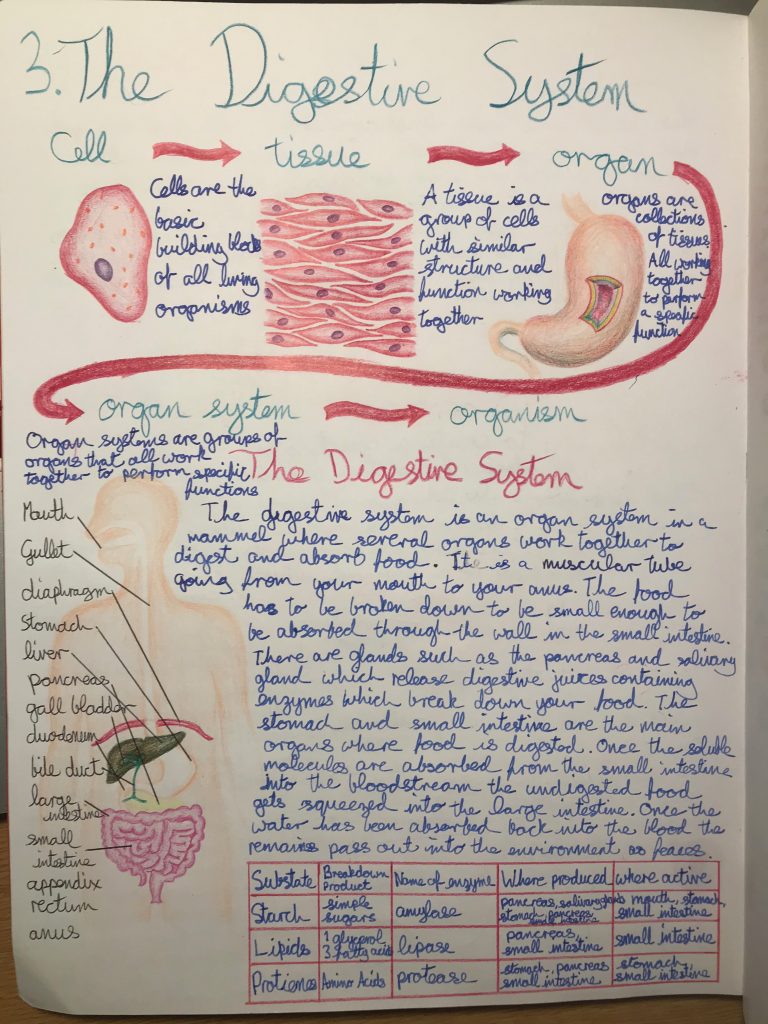 3. The Digestive System
Cell
tissue
organ
Cells are the
basic
building blocks
of all living
organisms
A tissue is a
group of cells
with similar
structure and
function working
together
organs are
collections
of tissues
All working
together
to perform
a specific
function.
organ system
organism
Organ systems are groups of
organs that all work
together to perform specific
functions
The Digestive System
The digestive system is an organ system in a
mammel where several organs work together to
digest and absorb food. It is a muscular tube
going from your mouth to your anus. The food
has to be broken down to be small enough to
be absorbed through the wall in the small intestine.
There are glands such as the pancreas and salivary
gland which release digestive juices containing
enzymes which break down your food. The
stomach and small intestine are the main
organs where food is digested. Once the soluble
molecules are absorbed from the small intestine
into the bloodstream the undigested food
gets squeezed into the large intestine. Once the
water has been absorbed back into the blood the
remains pass out into the environment as feaces.
Mouth
Gullet
diaphragm
Stomach
liver
pancreas
gall bladder
duodenum
bile duct
large
intestine
small
intestine
appendix
rectum
anus
Substate Breakdown Product Name of enzyme Where produced where active
Starch simple sugars amylase pancreas, salivary glands stomach, pancreas, small intestine mouth, stomach, small intestine
Lipids 1 glycerol 3 fatty acids lipase pancreas, small intestine small intestine
Protienes Amino Acids protease stomach, pancreas small intestine stomach, small intestine